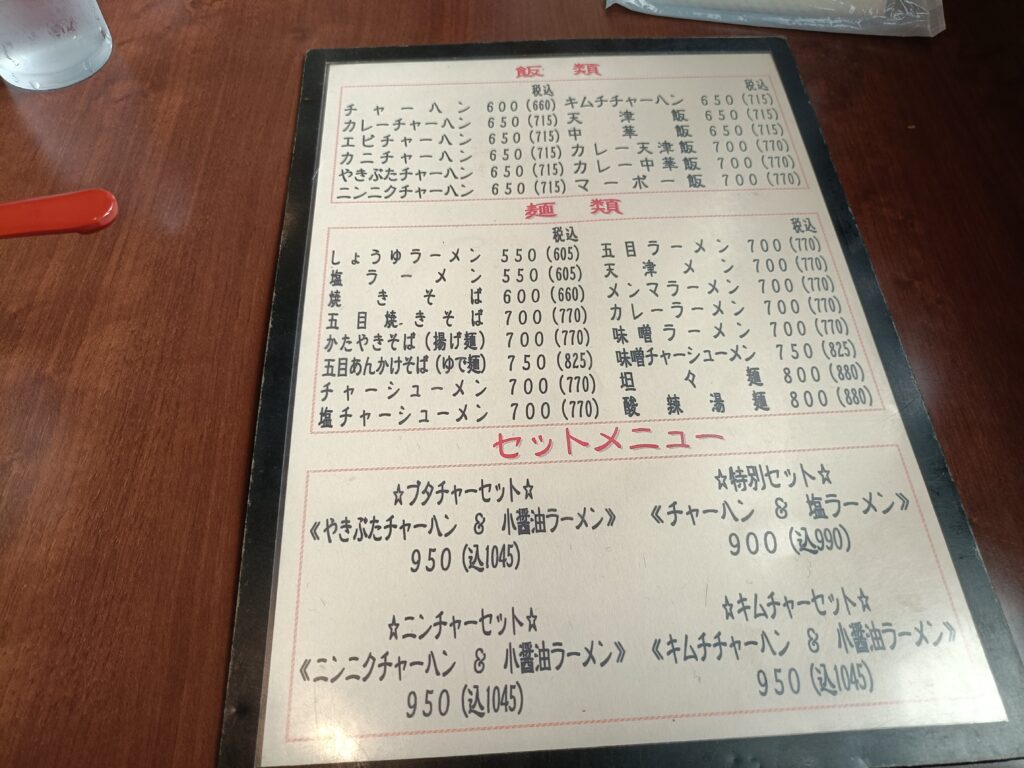 飯類
税込
チャーハン 600(660)
カレーチャーハン 650(715)
エビチャーハン 650(715)
カニチャーハン 650(715)
やきぶたチャーハン 650(715)
ニンニクチャーハン 650(715)
税込
キムチチャーハン 650(715)
天津飯 650(715)
中華飯 650(715)
カレー天津飯 700(770)
カレー中華飯 700(770)
マーボー飯 700(770)
麺類
税込
しょうゆラーメン 550(605)
塩ラーメン 550(605)
焼きそば 600(660)
五目焼きそば 700(770)
かたやきそば(揚げ麺) 700(770)
五目あんかけそば(ゆで麺) 750(825)
チャーシューメン 700(770)
塩チャーシューメン 700(770)
税込
五目ラーメン 700(770)
天津メン 700(770)
メンマラーメン 700(770)
カレーラーメン 700(770)
味噌ラーメン 700(770)
味噌チャーシューメン 750(825)
坦々麺 800(880)
酸辣湯麺 800(880)
セットメニュー
☆ブタチャーセット☆
《やきぶたチャーハン & 小醤油ラーメン》
950(込1045)
☆特別セット☆
《チャーハン & 塩ラーメン》
900(込990)
☆ニンチャーセット☆
《ニンニクチャーハン & 小醤油ラーメン》
950(込1045)
☆キムチャーセット☆
《キムチチャーハン & 小醤油ラーメン》
950(込1045)